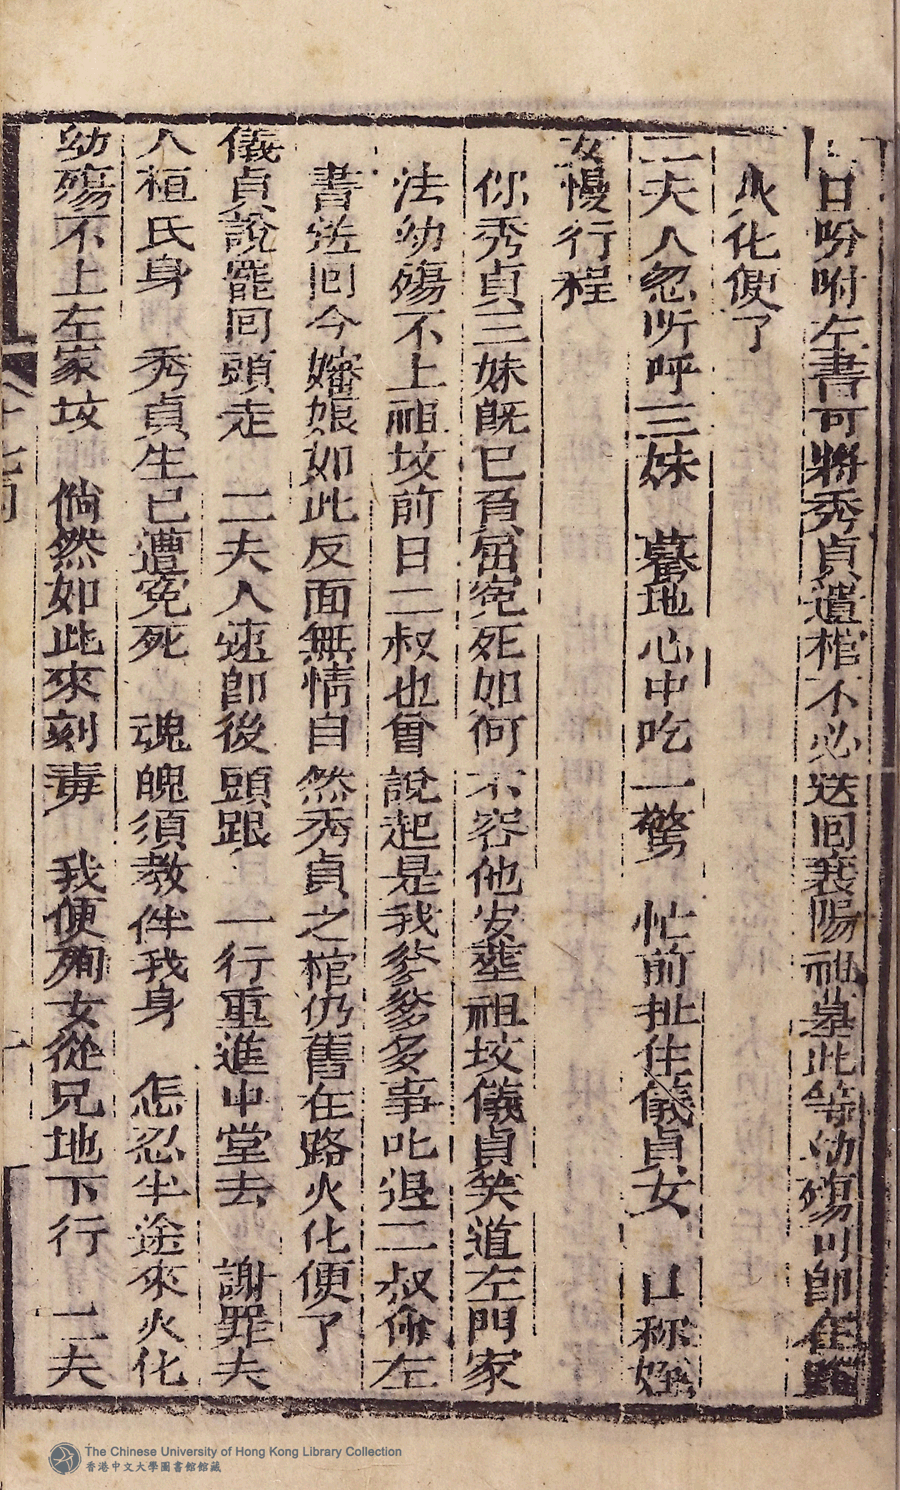 日吩咐左書可將秀貞遺棺不必送回襄陽祖墓此等幼殤可即在路
火化便了
二夫人忽听呼三妹　驀地心中吃一驚　忙前扯住儀貞女　口称姪
女慢行程
你秀貞三妹既已負屈寃死如何不容他安塟祖坟儀貞笑道左門家
法幼殤不上祖坟前日二叔也曾說起是我爹爹多事叱退二叔俻左
書送回今嬸娘如此反面無情自然秀貞之棺仍舊在路火化便了
儀貞說罷回頭走　二夫人速即後頭跟　一行重進中堂去　謝罪夫
人桓氏身　秀貞生已遭寃死　魂魄須教伴我身　怎忍半途來火化
幼殤不上左家坟　倘然如此來刻毒　我便殉女從兄地下行　二夫
十七回
The Chinese University of Hong Kong Library Collection
香港中文大學圖書館館藏